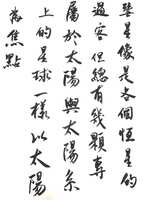 彗星像是各個恒星的
過客但總有幾顆專
屬於太陽與太陽系
上的星球一樣以太陽
為焦點